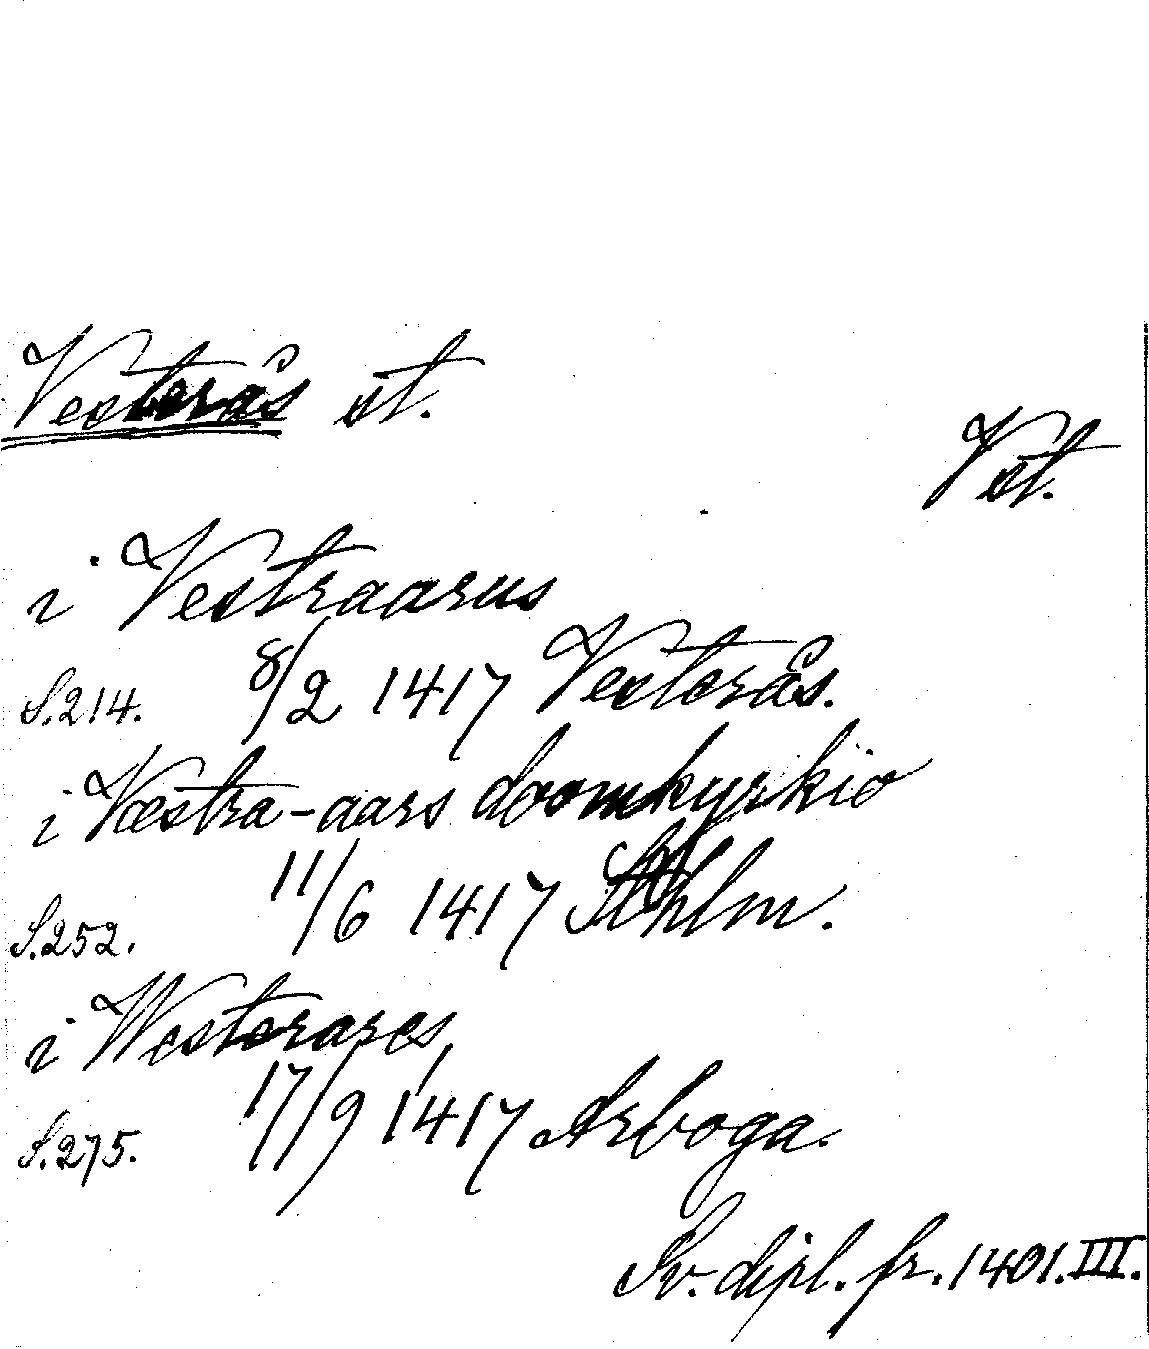 Vesterås st.
Vst.
i Vestraarus
S. 214. 8/2 1417 Vesterås.
i Væstra-aars doomkyrkio
S. 252. 11/6 1417 Sthlm.
i Westerares
S. 275. 17/9 1417 Arboga.
Sv. dipl. fr. 1401. III.